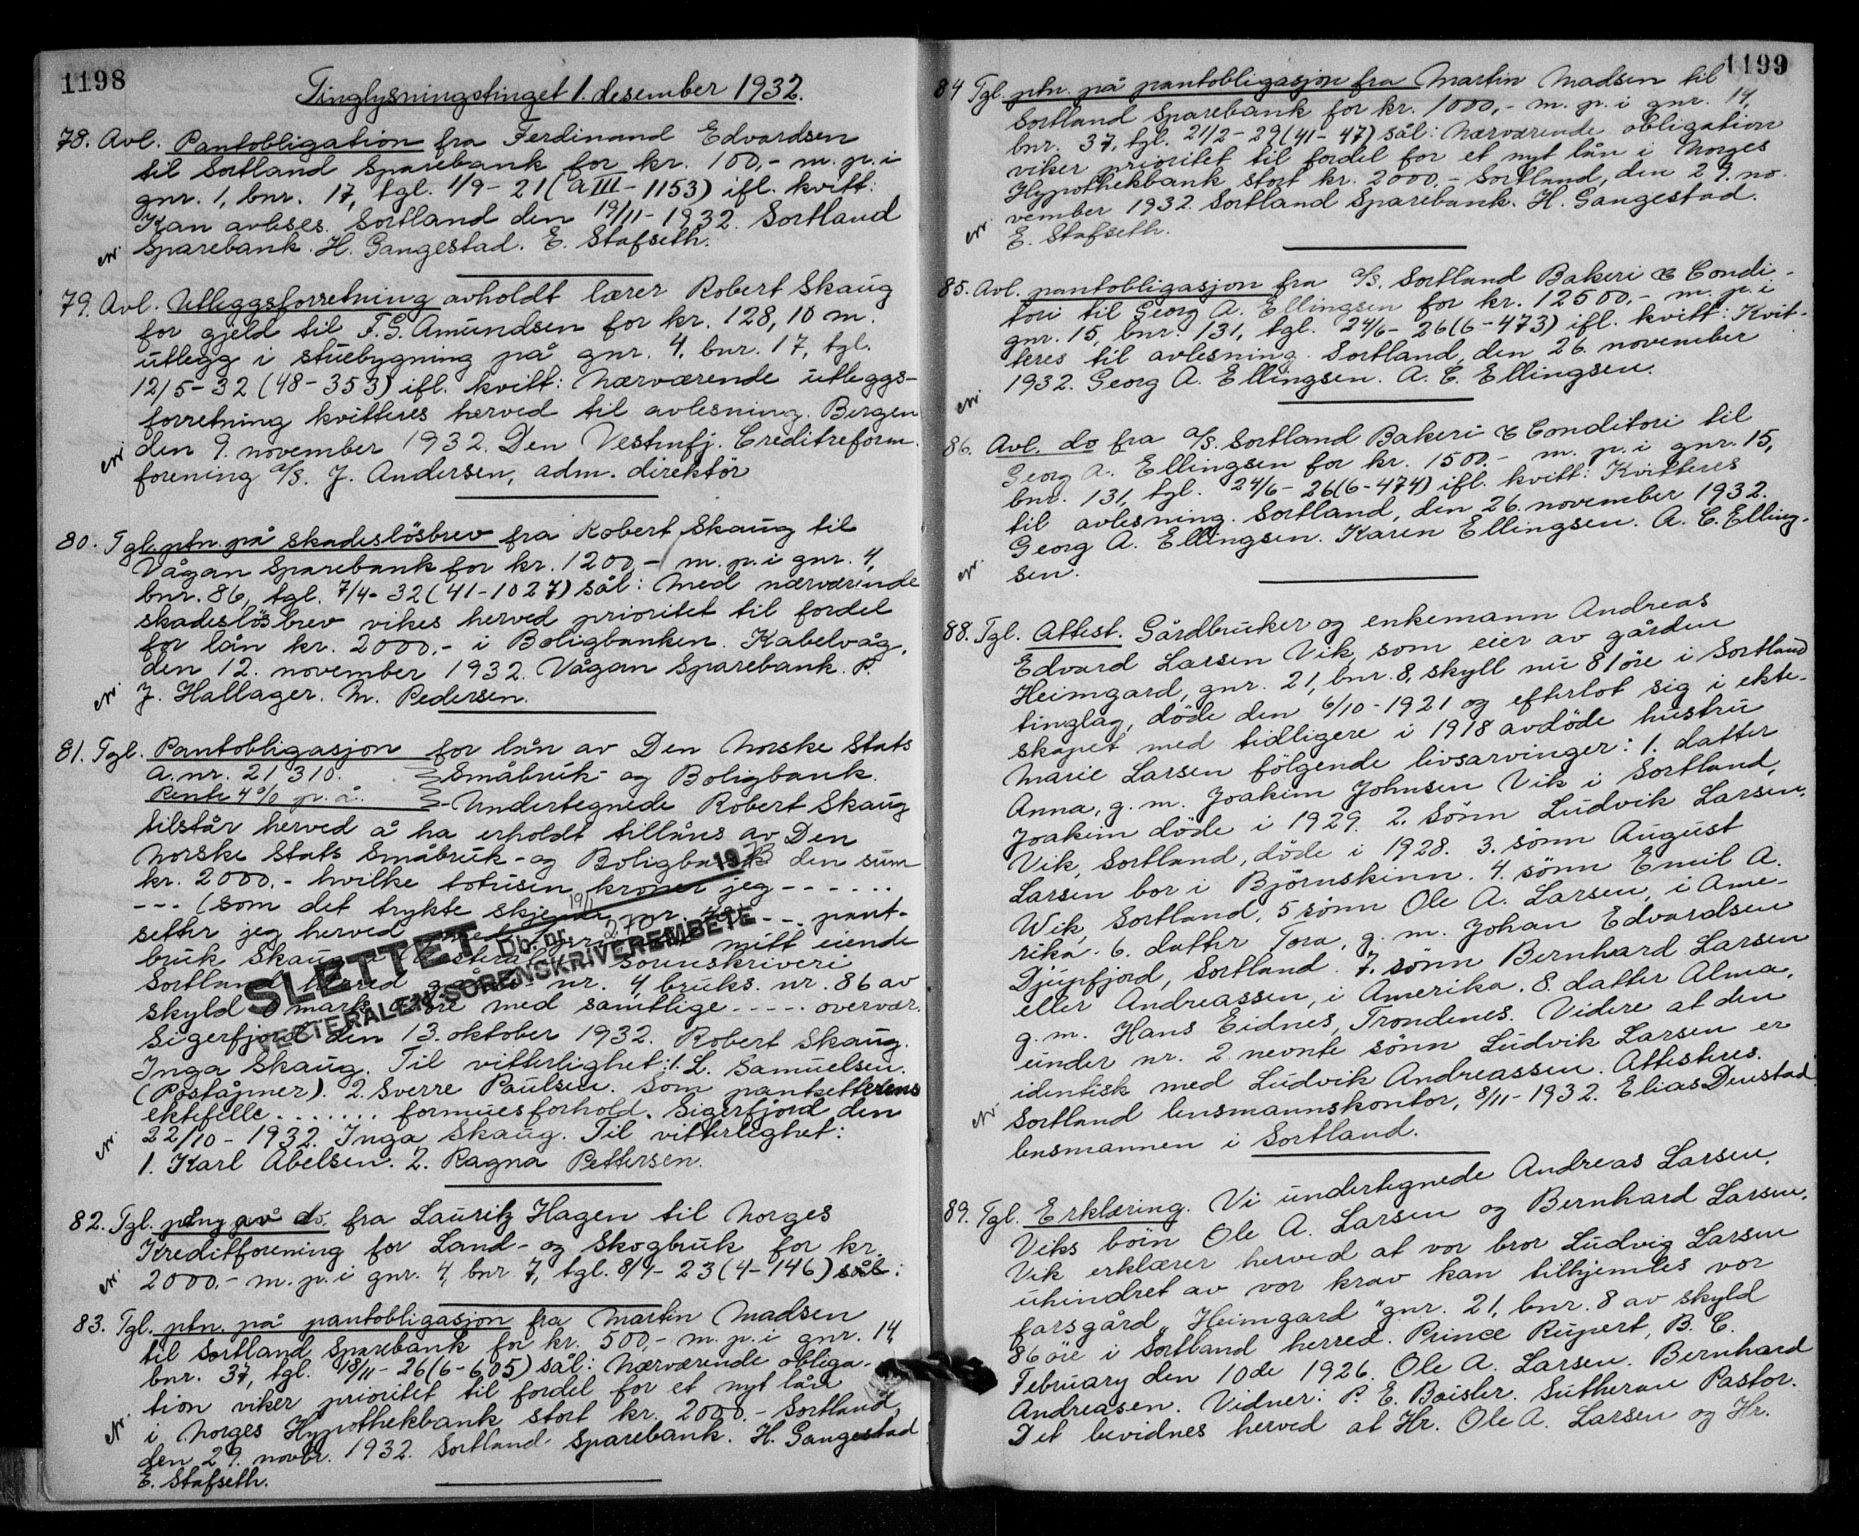 1198
Tinglysningstinget 1. desember 1932.
78. Avl. Pantobligation fra Ferdinand Edvardsen
til Sortland Sparebank for kr. 100,- m. p. i
gnr. 1, bnr. 17, tgl. 1/9-21 (a III-1153) ifl. kvitt:
Kan avleses. Sortland den 19/11-1932. Sortland
Sparebank. H. Gangestad. E. Stafseth.
79. Avl. Utleggsforretning avholdt lærer Robert Skaug
for gjeld til F. G. Amundsen for kr. 128,10 m.
utlegg i stuebygning på gnr. 4, bnr. 17, tgl.
12/5-32 (48-353) ifl. kvitt: Nærværende utleggs-
forretning kvitteres herved til avlesning. Bergen
den 9. november 1932. Den Vestenfj. Creditreform-
forening a/s. J. Andersen, adm. direktör
80. Tgl. ptn. på skadeslösbrev fra Robert Skaug til
Vågan Sparebank for kr. 1200,- m. p. i gnr. 4,
bnr. 86, tgl. 7/4-32 (41-1027) sål: Med nærværende
skadeslösbrev vikes herved prioritet til fordel
for lån kr. 2000,- i Boligbanken. Kabelvåg,
den 12. november 1932. Vågan Sparebank. P.
J. Hallager. M. Pedersen.
81. Tgl. Pantobligasjon for lån av Den Norske Stats
a. nr. 21310. Småbruk- og Boligbank.
Rente 4% p. å. Undertegnede Robert Skaug
tilstår herved å ha erholdt tillåns av Den
Norske Stats Småbruk- og Boligbank den sum
kr. 2000,- hvilke totusen kroner jeg - - - - - -
- - - (som det trykte skjema - - pant-
setter jeg herved med mitt eiende
bruk Skaug i Vesterålen sorenskriveri
Sortland herred gårds- nr. 4, bruks. nr. 86 av
skyld 0 mark öre med samtlige - - - - - overvær.
SLETTET Db. nr.
VESTERÅLEN SORENSKRIVEREMBETE
Sigerfjord den 13. oktober 1932. Robert Skaug.
Inga Skaug. Til vitterlighet: 1. L. Samuelsen.
(Poståpner). 2. Sverre Paulsen. Som pantsetterens
ektefelle . . . . . . . formuesforhold. Sigerfjord den
22/10-1932. Inga Skaug. Til vitterlighet:
1. Karl Abelsen. 2. Ragna Pettersen.
82. Tgl. av do. fra Lauritz Hagen til Norges
Kreditforening for Land- og Skogbruk for kr.
2000,- m. p. i gnr. 4, bnr 7, tgl. 8/4-23 (4-146) sål:
83. Tgl. ptn. på pantobligasjon fra Martin Madsen
til Sortland Sparebank for kr. 500,- m. p. i gnr. 14,
bnr. 37, tgl. 18/11-26 (6-605) sål: Nærværende obliga-
tion viker prioritet til fordel for et nyt lån
i Norges Hypothekbank stort kr. 2000.- Sortland,
den 29. novbr. 1932. Sortland Sparebank. H. Gangestad
E. Stafseth.
1199
84 Tgl. ptn. på pantobligasjon fra Martin Madsen til
Sortland Sparebank for kr. 1000,- m. p. i gnr. 14,
bnr. 37, tgl. 21/2-29 (41-47) sål: Nærværende obligation
viker prioritet til fordel for et nyt lån i Norges
Hypothekbank stort kr. 2000.- Sortland, den 29. no-
vember 1932. Sortland Sparebank. H. Gangestad.
E. Stafseth.
85. Avl. pantobligasjon fra a/s. Sortland Bakeri & Condi-
tori til Georg A. Ellingsen for kr. 12500,- m. p. i
gnr. 15, bnr. 131, tgl. 24/6-26 (6-473) ifl. kvitt: Kvit-
teres til avlesning. Sortland, den 26. november
1932. Georg A. Ellingsen. A. C. Ellingsen.
86. Avl. do fra a/s. Sortland Bakeri & Conditori til
Georg A. Ellingsen for kr. 1500,- m. p. i gnr. 15,
bnr. 131, tgl. 24/6-26 (6-474) ifl. kvitt: Kvitteres
til avlesning. Sortland, den 26. november 1932.
Georg A. Ellingsen. Karen Ellingsen. A. C. Elling-
sen.
88. Tgl. Attest. Gårdbruker og enkemann Andreas
Edvard Larsen Vik, som eier av gården
Heimgard, gnr. 21, bnr. 8, skyll nu 81 öre i Sortland
tinglag, döde den 6/10-1921 og efterlot sig i ekte-
skapet med tidligere i 1918 avdöde hustru
Marie Larsen fölgende livsarvinger: 1. datter
Anna, g. m. Joakim Johnsen Vik i Sortland,
Joakim döde i 1929. 2. sönn Ludvik Larsen,
Vik, Sortland, döde i 1928. 3. sönn August
Larsen bor i Björnskinn. 4. sönn Emil A.
Wik, Sortland, 5 sönn Ole A. Larsen, i Ame-
rika. 6. datter Tora, g. m. Johan Edvardsen
Djupfjord, Sortland. 7. sönn Bernhard Larsen
eller Andreassen, i Amerika, 8. datter Alma,
g. m. Hans Eidnes, Trondenes. Videre at den
under nr. 2 nevnte sönn Ludvik Larsen er
identisk med Ludvik Andreassen. Attesteres.
Sortland lensmannskontor, 8/11-1932. Elias Denstad
lensmannen i Sortland.
89. Tgl. Erklæring. Vi undertegnede Andreas Larsen,
Viks börn Ole A. Larsen og Bernhard Larsen,
Vik erklærer herved at vor bror Ludvig Larsen
uhindret av vor krav kan tilhjemles vor
farsgård „Heimgard" gnr. 21, bnr. 8 av skyld
86 öre i Sortland herred. Prince Rupert, B. C.
February den 10de 1926. Ole A. Larsen. Bernhard
Andreasen. Vidner: P. E. Baisler. Lutheran Pastor.
Det bevidnes herved at Hr. Ole A. Larsen og Hr.